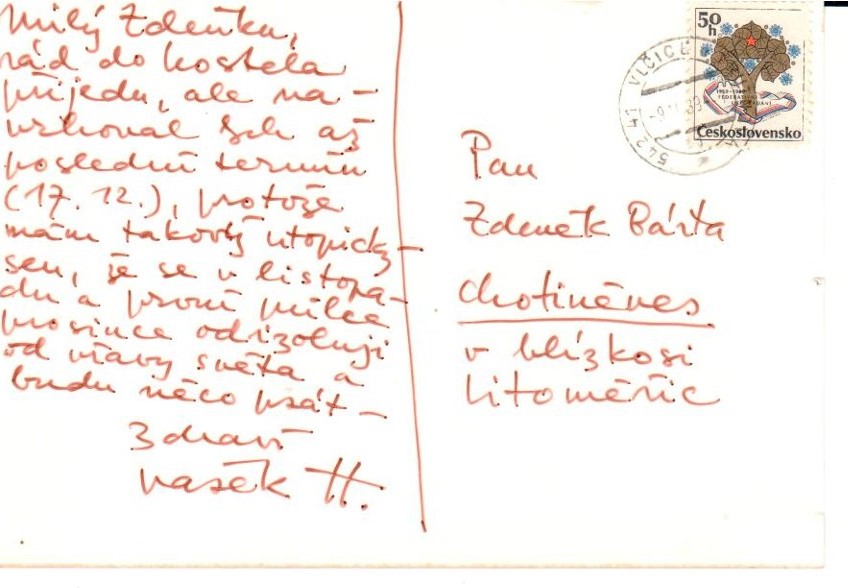 Milý Zdeňku,
rád do kostela
přijedu, ale na-
vrhoval bch až
poslední termín
(17. 12.), protože
mám takový utopický
sen, že se v listopa-
du a první půlce
prosince odizoluji
od vřavy světa a
budu něco psát -
Zdraví
Vašek H.
Pan
Zdeněk Bárta
Chotiněves
v blízkosi
Litoměřic
50
h
1969-1989
Československo
542 41 VLČICE
-9.11.89